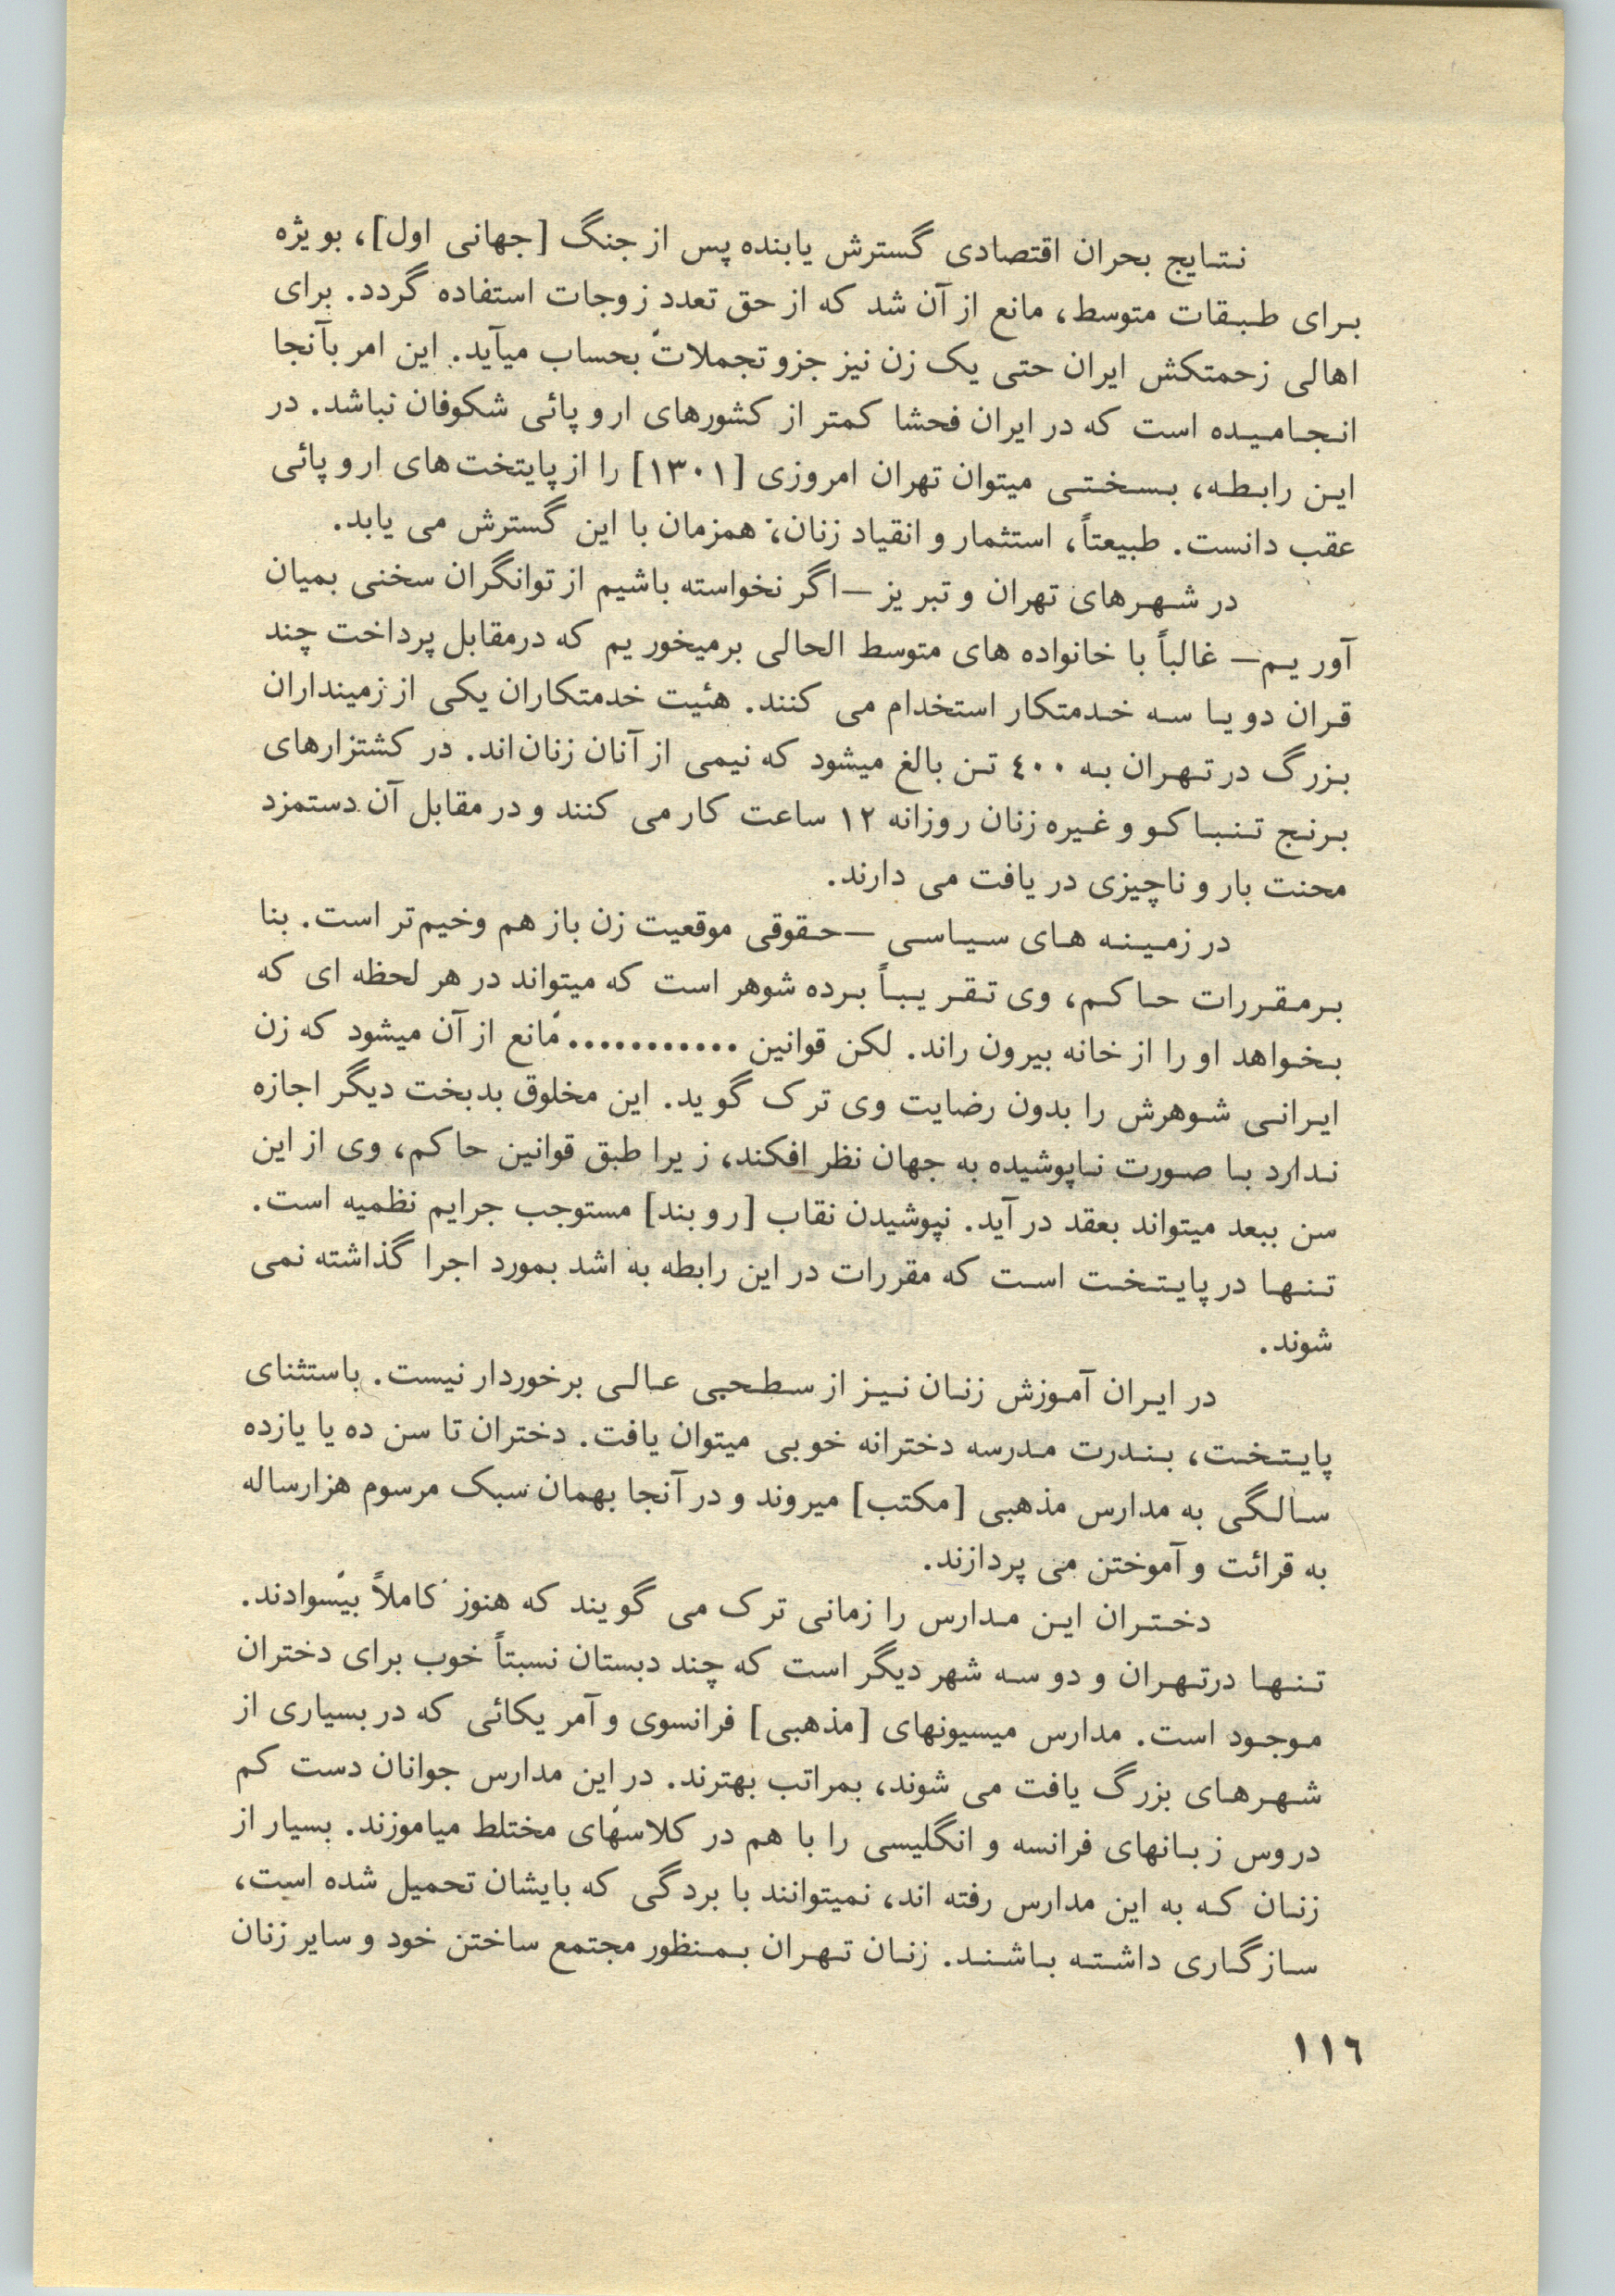 نتایج بحران اقتصادی گسترش یابنده پس از جنگ [جهانی اول]، بویژه
برای طبقات متوسط، مانع از آن شد که از حق تعدد زوجات استفاده گردد. برای
اهالی زحمتکش ایران حتی یک زن نیز جزو تجملات بحساب میآید. این امر بآنجا
انجامیده است که در ایران فحشا کمتر از کشورهای اروپائی شکوفان نباشد. در
این رابطه، بسختی میتوان تهران امروزی [۱۳۰۱] را از پایتخت‌های اروپائی
عقب دانست. طبیعتاً، استثمار و انقیاد زنان، همزمان با این گسترش می یابد.
در شهرهای تهران و تبریز —اگر نخواسته باشیم از توانگران سخنی بمیان
آوریم— غالباً با خانواده های متوسط الحالی برمیخوریم که درمقابل پرداخت چند
قران دو یا سه خدمتکار استخدام می کنند. هئیت خدمتکاران یکی از زمینداران
بزرگ در تهران به ٤٠٠ تن بالغ میشود که نیمی از آنان زنان‌اند. در کشتزارهای
برنج تنباکو و غیره زنان روزانه ۱۲ ساعت کار می کنند و در مقابل آن دستمزد
محنت بار و ناچیزی دریافت می دارند.
در زمینه های سیاسی —حقوقی موقعیت زن باز هم وخیم‌تر است. بنا
برمقررات حاکم، وی تقریباً برده شوهر است که میتواند در هر لحظه ای که
بخواهد او را از خانه بیرون راند. لکن قوانین ........... مانع از آن میشود که زن
ایرانی شوهرش را بدون رضایت وی ترک گوید. این مخلوق بدبخت دیگر اجازه
ندارد با صورت ناپوشیده به جهان نظر افکند، زیرا طبق قوانین حاکم، وی از این
سن ببعد میتواند بعقد در آید. نپوشیدن نقاب [روبند] مستوجب جرایم نظمیه است.
تنها در پایتخت است که مقررات در این رابطه به اشد بمورد اجرا گذاشته نمی
شوند.
در ایران آموزش زنان نیز از سطحی عالی برخوردار نیست. باستثنای
پایتخت، بندرت مدرسه دخترانه خوبی میتوان یافت. دختران تا سن ده یا یازده
سالگی به مدارس مذهبی [مکتب] میروند و در آنجا بهمان سبک مرسوم هزارساله
به قرائت و آموختن می پردازند.
دختران این مدارس را زمانی ترک می گویند که هنوز کاملاً بیسوادند.
تنها درتهران و دو سه شهر دیگر است که چند دبستان نسبتاً خوب برای دختران
موجود است. مدارس میسیونهای [مذهبی] فرانسوی و آمریکائی که در بسیاری از
شهرهای بزرگ یافت می شوند، بمراتب بهترند. در این مدارس جوانان دست کم
دروس زبانهای فرانسه و انگلیسی را با هم در کلاسهای مختلط میاموزند. بسیار از
زنان که به این مدارس رفته اند، نمیتوانند با بردگی که بایشان تحمیل شده است،
سازگاری داشته باشند. زنان تهران بمنظور مجتمع ساختن خود و سایر زنان
١١٦